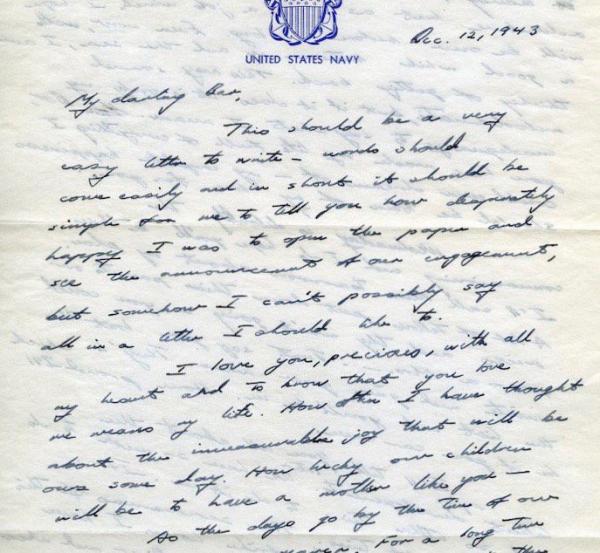 UNITED STATES NAVY
Dec. 12, 1943
My darling Bar,
This should be a very
easy letter to write – words should
come easily and in short it should be
simple for me to tell you how desperately
happy I was to open the paper and
see the announcement of our engagement,
but somehow I can't possibly say
all in a letter I should like to.
I love you, precious, with all
my heart and to know that you love
me means my life. How often I have thought
about the immeasurable joy that will be
ours some day. How lucky our children
will be to have a mother like you –
As the days go by the time of our
For a long time